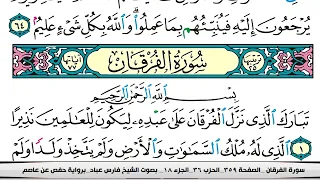 يُرْجَعُونَ إِلَيْهِ فَيُنَبِّئُهُم بِمَا عَمِلُوا۟ ۗ وَٱللَّهُ بِكُلِّ شَىْءٍ عَلِيمٌۢ ٦٤
سُورَةُ الْفُرْقَانِ
بِسْمِ ٱللَّهِ ٱلرَّحْمَٰنِ ٱلرَّحِيمِ
تَبَارَكَ ٱلَّذِى نَزَّلَ ٱلْفُرْقَانَ عَلَىٰ عَبْدِهِۦ لِيَكُونَ لِلْعَٰلَمِينَ نَذِيرًا ١
ٱلَّذِى لَهُۥ مُلْكُ ٱلسَّمَٰوَٰتِ وَٱلْأَرْضِ وَلَمْ يَتَّخِذْ وَلَدًا وَلَمْ
سورة الفرقان .. الصفحة ٣٥٩ .. الحزب ٣٦ .. الجزء ١٨ .. بصوت الشيخ فارس عباد .. برواية حفص عن عاصم